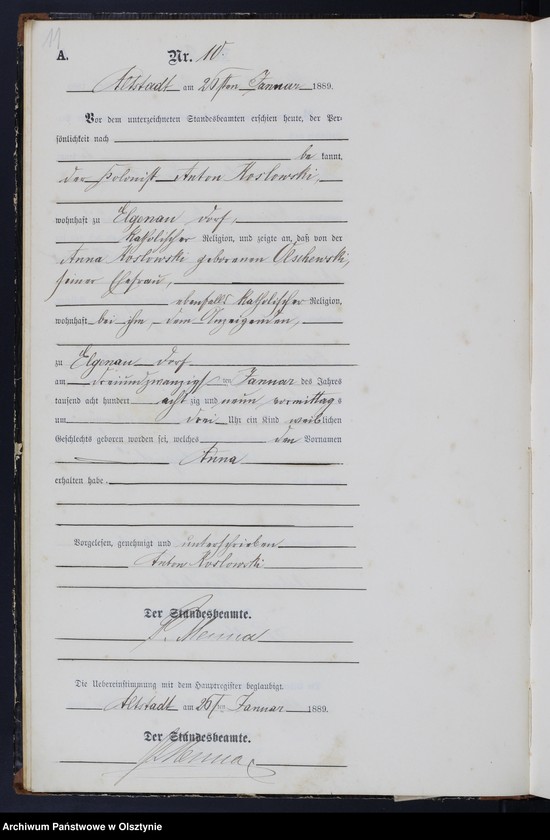 11
A.
Nr. 10.
Altstadt am 26ten Januar 1889.
Vor dem unterzeichneten Standesbeamten erschien heute, der Per-
sönlichkeit nach
be kannt,
der Kolonist Anton Koslowski,
wohnhaft zu Elgenau Dorf,
katholischer Religion, und zeigte an, daß von der
Anna Koslowski geborenen Olschewski,
seiner Ehefrau,
ebenfalls katholischer Religion,
wohnhaft bei ihm, dem Anzeigenden,
zu Elgenau Dorf
am dreiundzwanzigsten Januar des Jahres
tausend acht hundert acht zig und neun vormittags
um drei Uhr ein Kind weiblichen
Geschlechts geboren worden sei, welches den Vornamen
Anna
erhalten habe.
Vorgelesen, genehmigt und unterschrieben
Anton Koslowski
Der Standesbeamte.
Menna
Die Uebereinstimmung mit dem Hauptregister beglaubigt.
Altstadt am 26ten Januar 1889.
Der Standesbeamte.
Menna
Archiwum Państwowe w Olsztynie